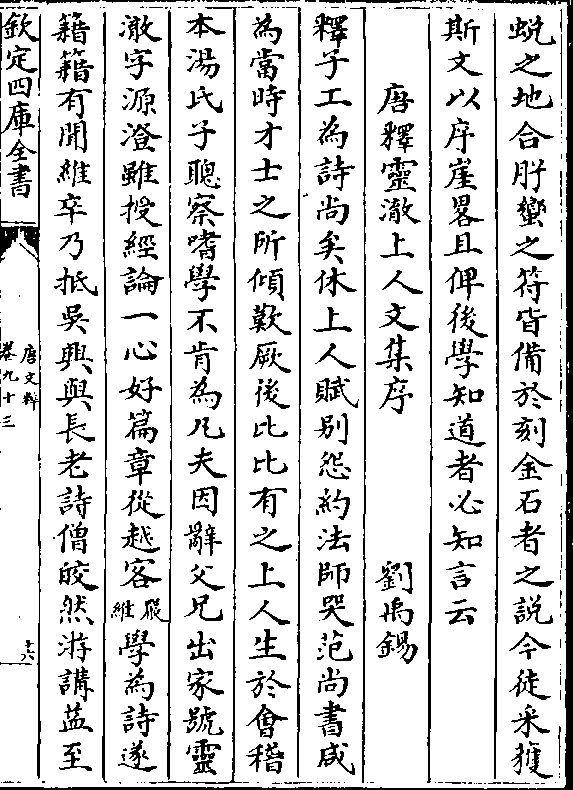 蛻之地合肸蠁之符皆備於刻金石者之說今徒采摭
斯文以序崖畧且俾後學知道者必知言云
唐釋靈澈上人文集序 劉禹錫
釋子工為詩尚矣休上人賦别怨約法師哭范尚書咸
為當時才士之所傾歎厥後比比有之上人生於會稽
本湯氏子聰察嗜學不肯為凡夫因辭父兄出家號靈
澈字源澄雖授經論一心好篇章從越客嚴維學為詩遂
籍籍有聞維卒乃抵吳興與長老詩僧皎然游講藝至
欽定四庫全書
唐文粹
卷九十三
十六